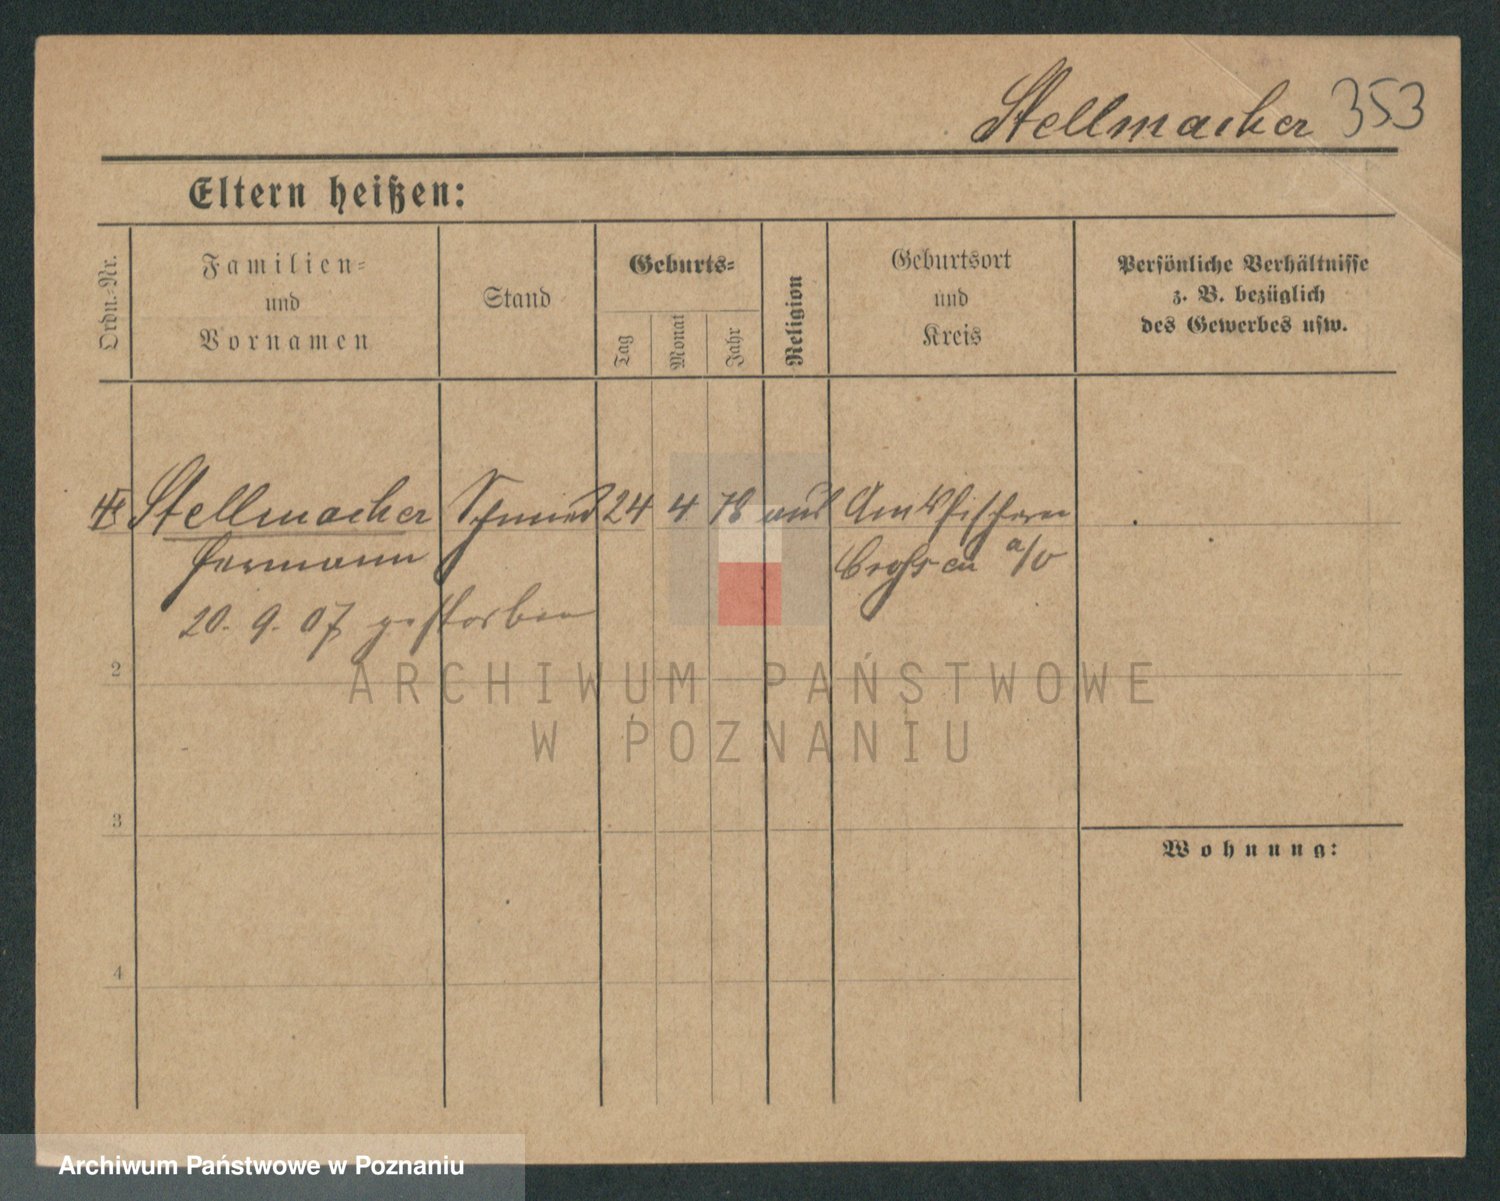 Stellmacher 353
Eltern heißen:
Ordn.-Nr.
Familien-
und
Vornamen
Stand
Geburts-
Tag
Monat
Jahr
Religion
Geburtsort
und
Kreis
Persönliche Verhältnisse
z. B. bezüglich
des Gewerbes usw.
Stellmacher Schmied 24 4 78
Hermann
Crossen a/O
20. 9. 07 gestorben
2
3
4
Wohnung:
ARCHIWUM PAŃSTWOWE
W POZNANIU
Archiwum Państwowe w Poznaniu